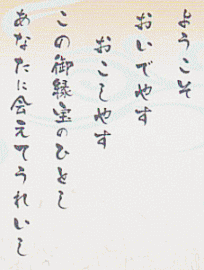 ようこそ
おいでやす
おこしやす
この御縁宝のひとし
あなたに会えてうれいし